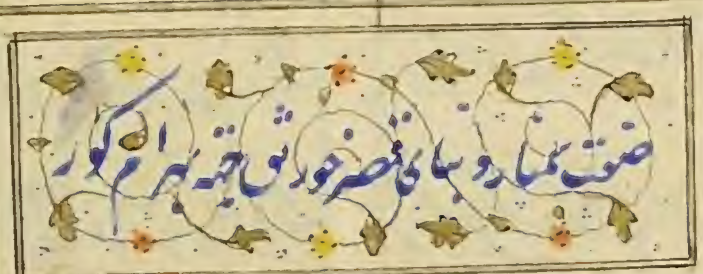 صفت سمنار و بنای قصر خورنق جهة بهرام کور